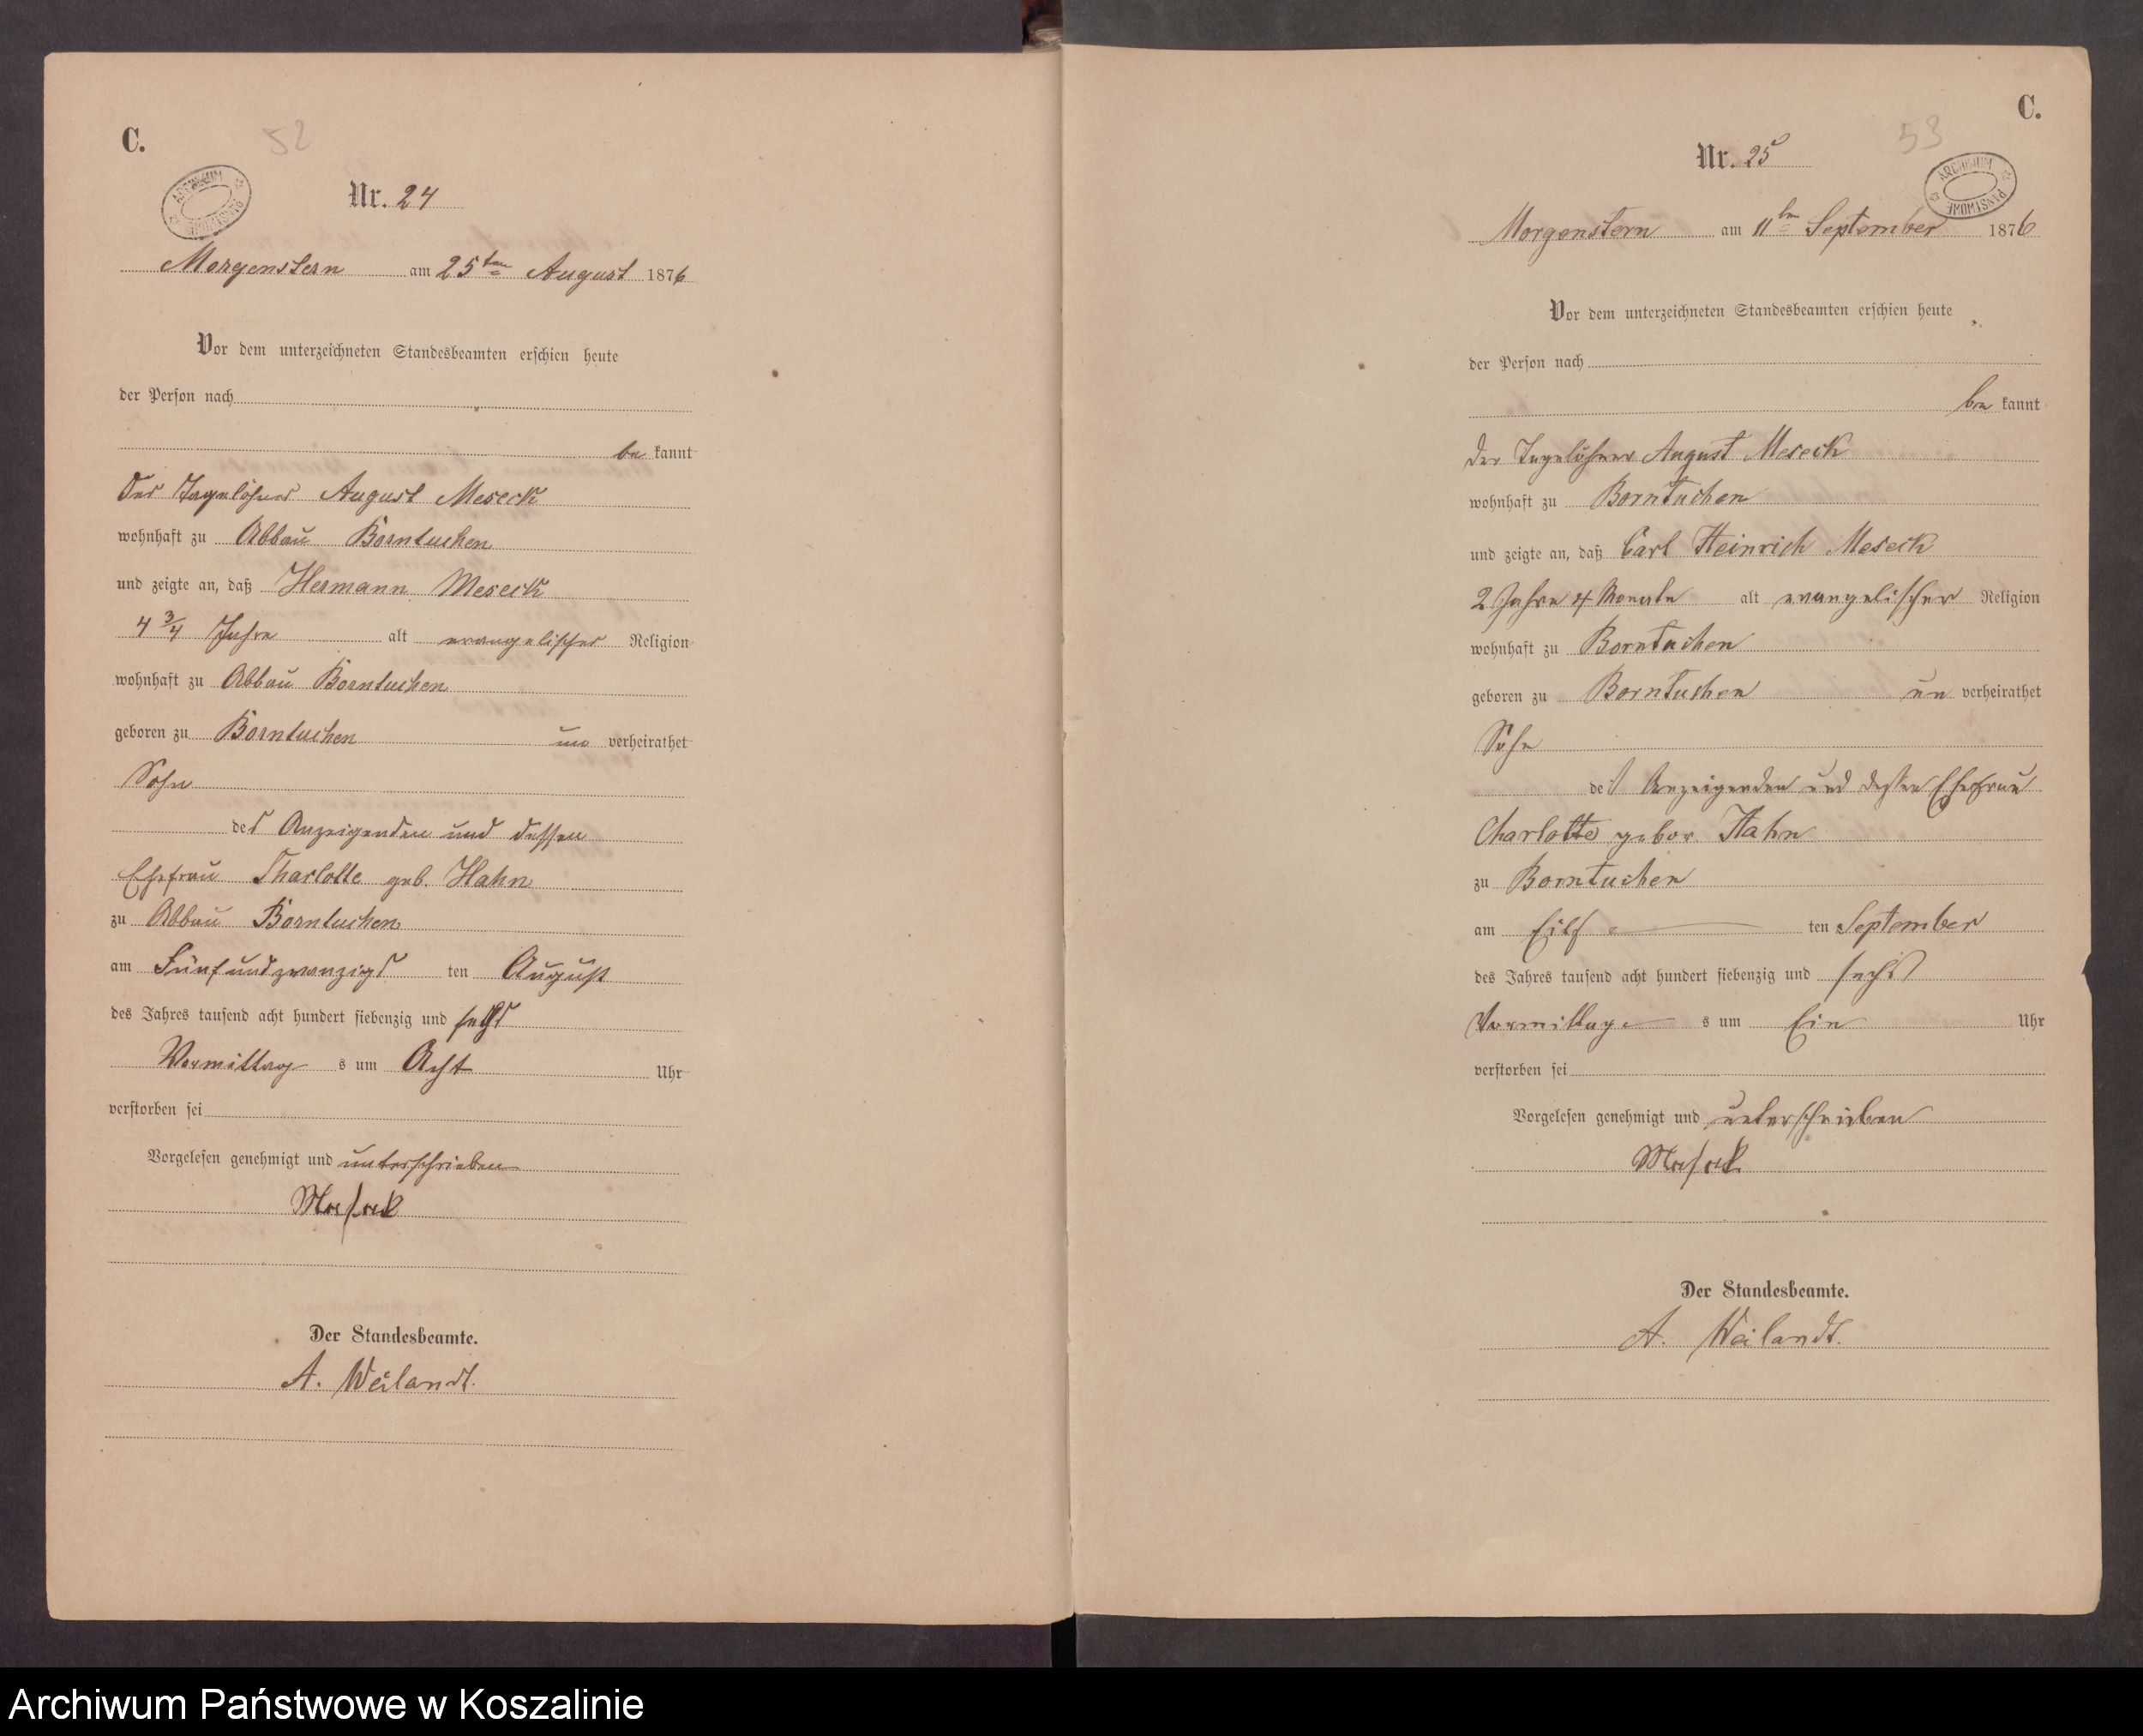 C.
52
ARCHIWUM PAŃSTWOWE
Nr. 24
Morgenstern am 25ten August 1876
Vor dem unterzeichneten Standesbeamten erschien heute
der Person nach
be kannt
der Tagelöhner August Meseck
wohnhaft zu Abbau Borntuchen
und zeigte an, daß Hermann Meseck
4 3/4 Jahre alt evangelischer Religion
wohnhaft zu Abbau Borntuchen
geboren zu Borntuchen un verheirathet
Sohn
des Anzeigenden und dessen
Ehefrau Charlotte geb. Hahn
zu Abbau Borntuchen
am Fünfundzwanzigs ten August
des Jahres tausend acht hundert siebenzig und sechs
Vormittag s um Acht Uhr
verstorben sei
Vorgelesen genehmigt und unterschrieben
Meseck
Der Standesbeamte.
A. Weilandt.
C.
53
ARCHIWUM PAŃSTWOWE
Nr. 25
Morgenstern am 11ten September 1876
Vor dem unterzeichneten Standesbeamten erschien heute
der Person nach
be kannt
der Tagelöhner August Meseck
wohnhaft zu Borntuchen
und zeigte an, daß Carl Heinrich Meseck
2 Jahre 4 Monate alt evangelischer Religion
wohnhaft zu Borntuchen
geboren zu Borntuchen un verheirathet
Sohn
des Anzeigenden und dessen Ehefrau
Charlotte gebor. Hahn
zu Borntuchen
am Eilf ten September
des Jahres tausend acht hundert siebenzig und sechs
Vormittag s um Ein Uhr
verstorben sei
Vorgelesen genehmigt und unterschrieben
Meseck
Der Standesbeamte.
A. Weilandt.
Archiwum Państwowe w Koszalinie